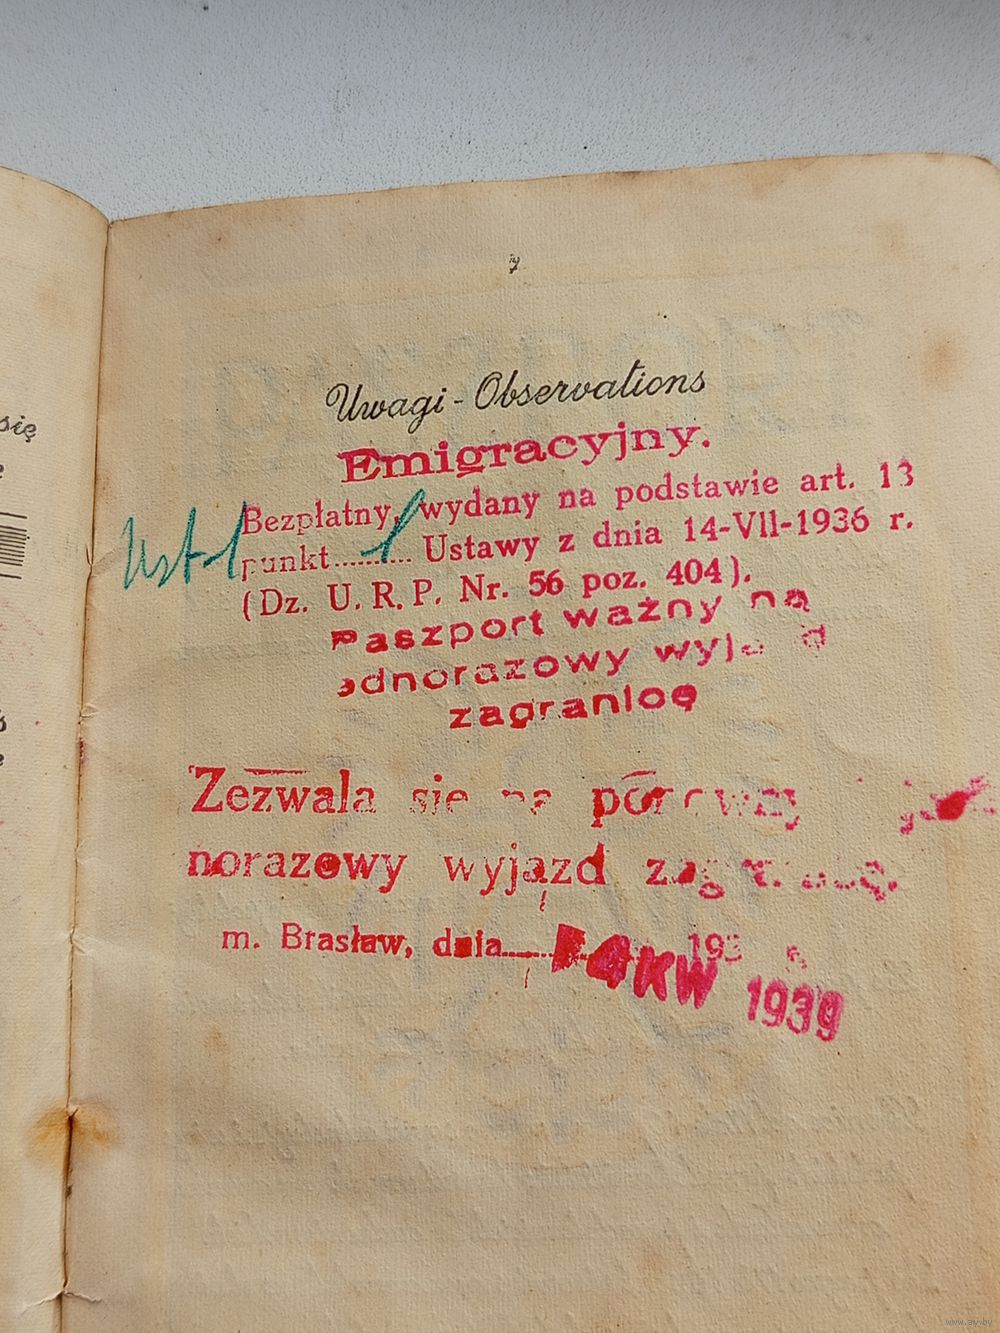 się
Uwagi - Observations
Emigracyjny.
Bezpłatny, wydany na podstawie art. 13
punkt.......... Ustawy z dnia 14-VII-1936 r.
(Dz. U. R. P. Nr. 56 poz. 404).
Paszport ważny na
ednorazowy wyj d
zagranicę
Zezwala się na
norazowy wyjazd
m. Brasław, dnia 193
4 KW 1939
www.ay.by